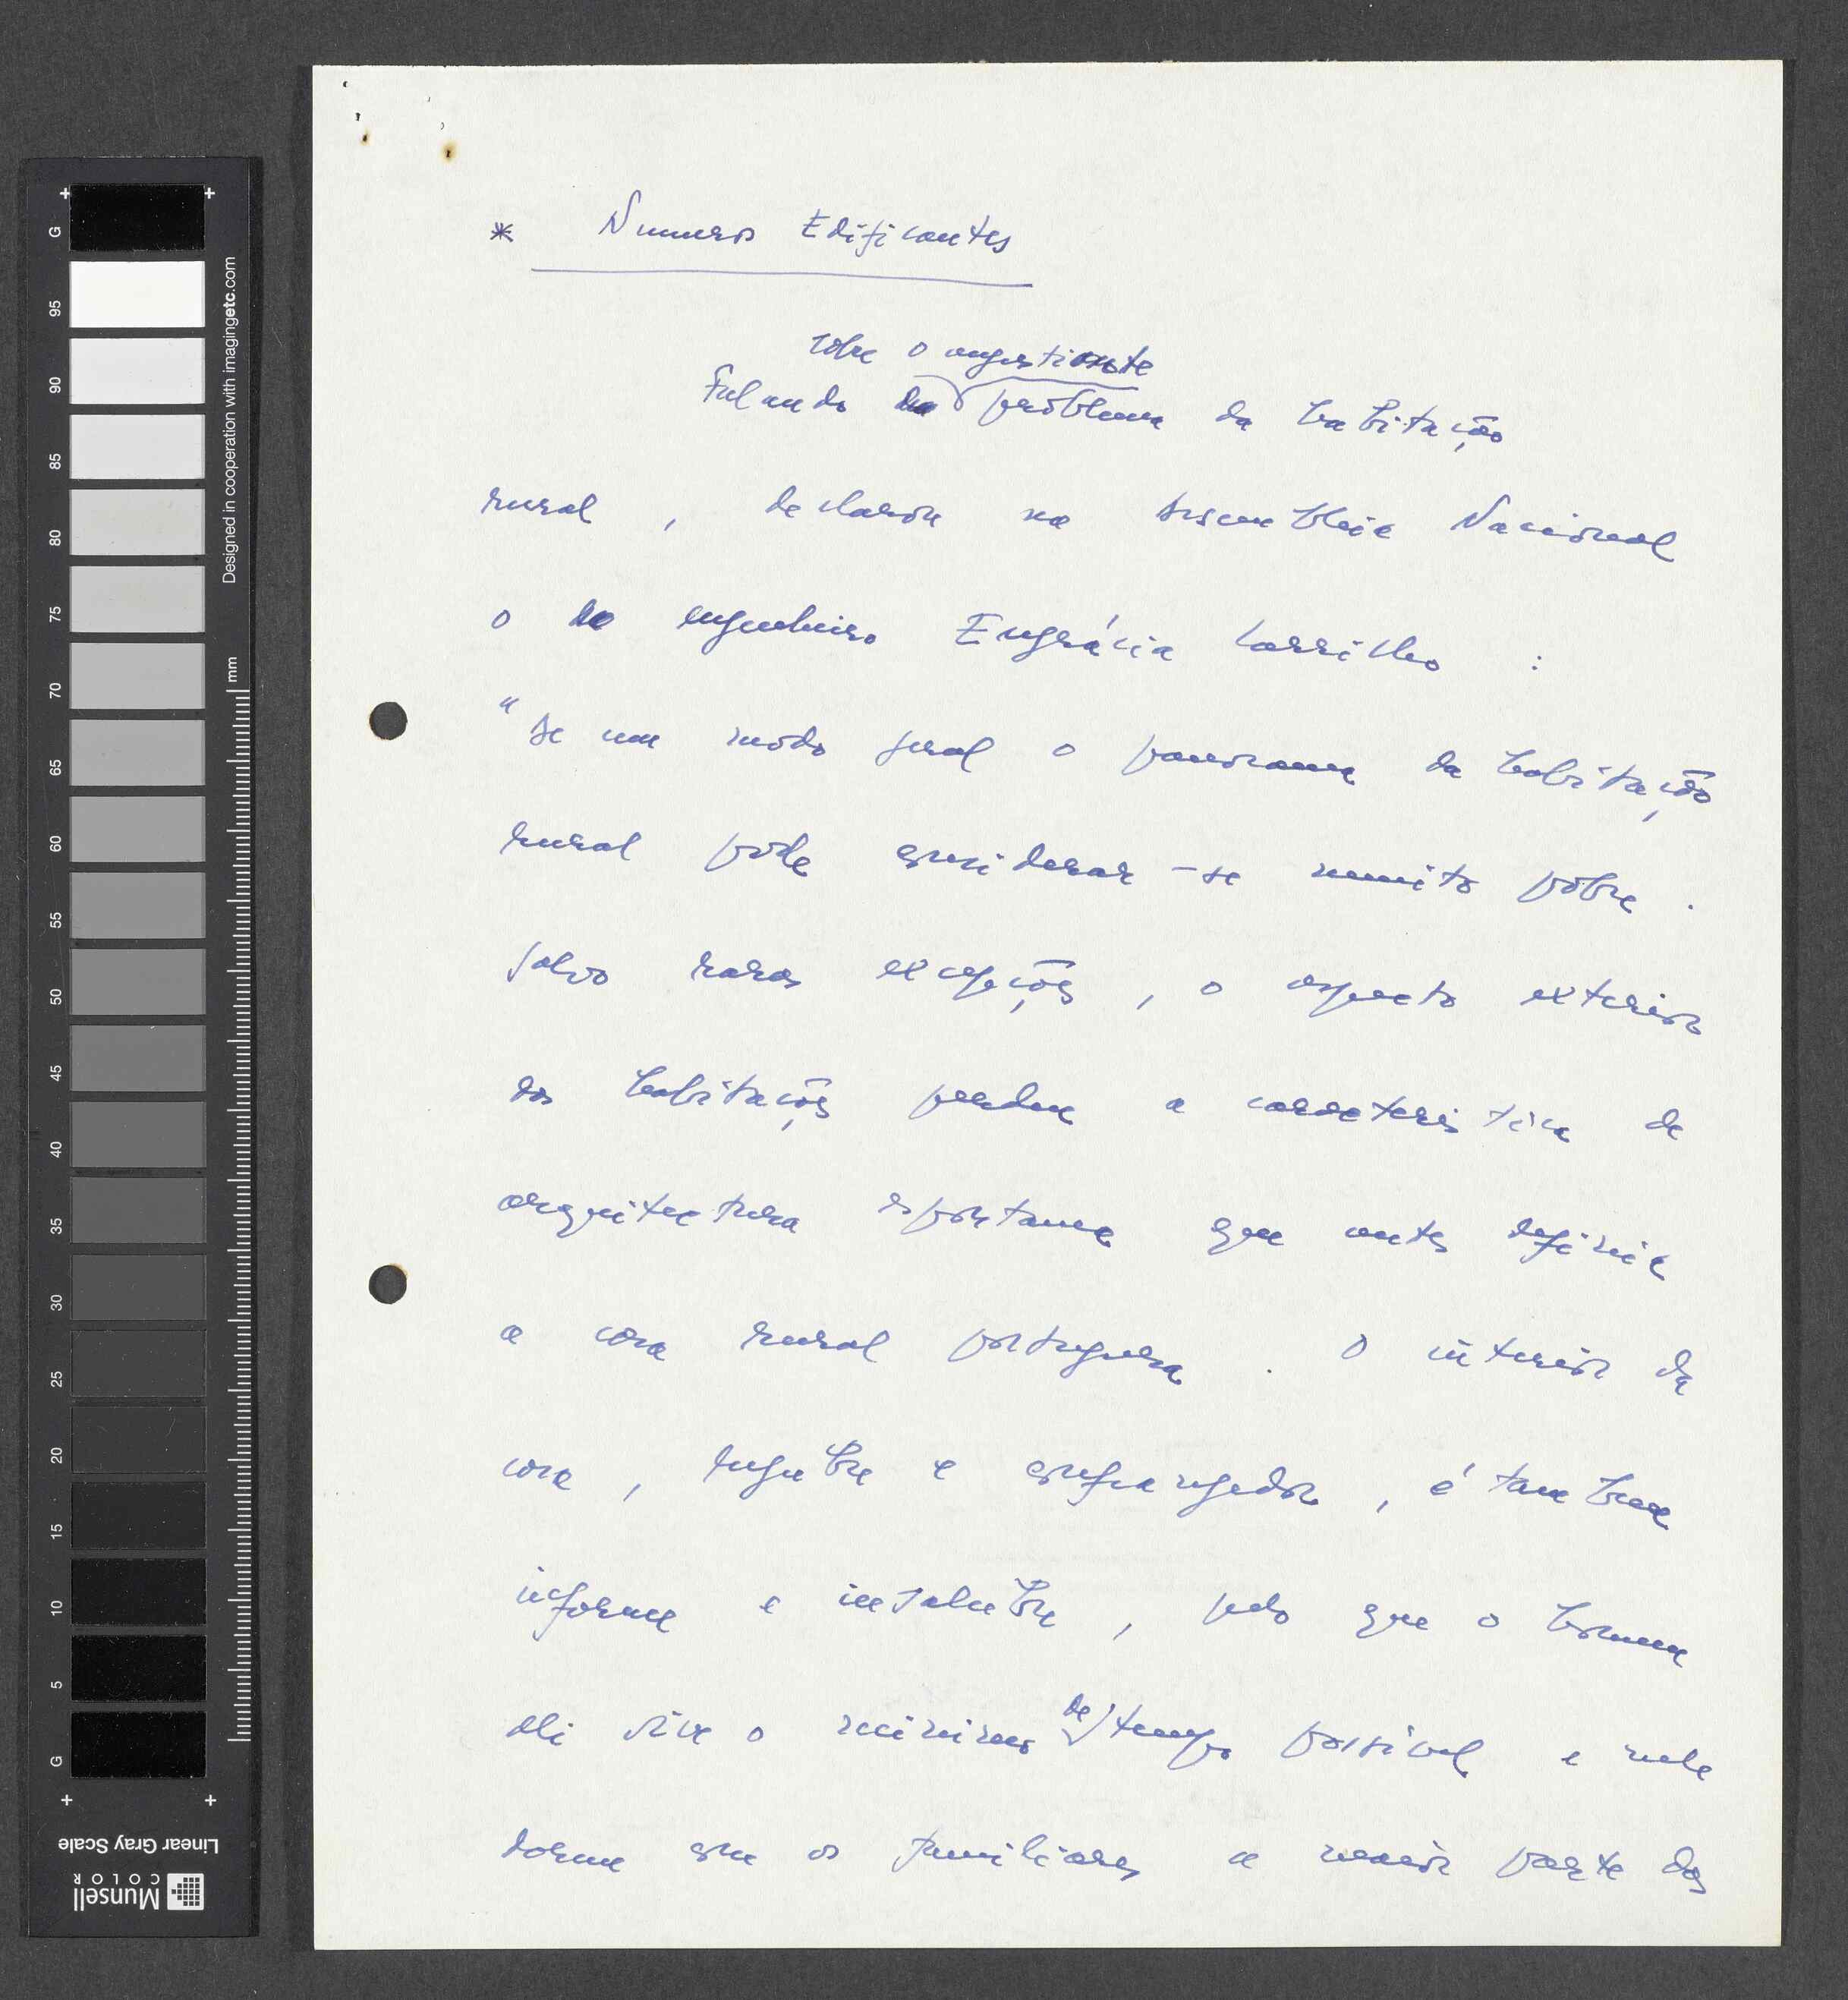 * Numeros Edificantes
sobre o angustiante
Falando do problema da habitação
rural, declarou na Assembleia Nacional
o engenheiro Engrácia Carrilho :
"De um modo geral o panorama da habitação
rural pode considerar-se muito pobre.
Salvo raras excepções, o aspecto exterior
das habitações perdeu a caracteristica de
arquitectura espontanea que antes definia
a casa rural portuguesa. O interior da
casa, lugubre e confrangedor, é tambem
informe e insalubre, pelo que o homem
ali vive o minimo de tempo possivel e nele
dorme com os familiares a maior parte das
G
95
90
85
80
75
70
65
60
55
50
45
40
35
30
25
20
15
10
5
G
Designed in cooperation with imagingetc.com
mm
Linear Gray Scale
Munsell
COLOR